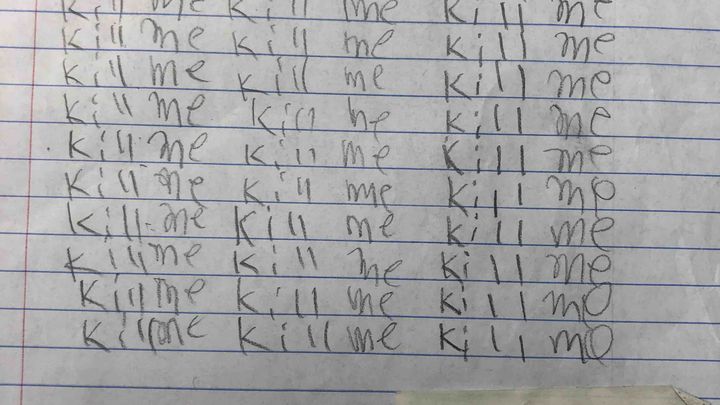 Kill me Kill me Kill me
Kill me Kill me Kill me
Kill me Kill me Kill me
Kill me Kill me Kill me
Kill me Kill me Kill me
Kill me Kill me Kill me
Kill me Kill me Kill me
Kill me Kill me Kill me
Kill me Kill me Kill me
Kill me Kill me Kill me